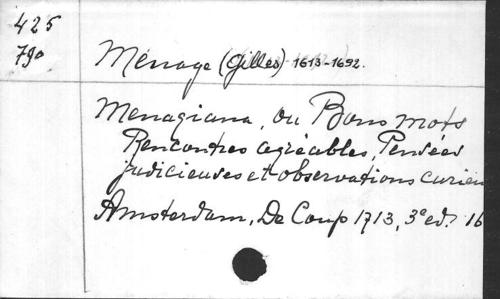 425
790
Ménage (Gilles) 1613-1692.
Menagiana, ou Bons mots
Rencontres agréables, Pensées
judicieuses et observations curieu
Amsterdam, De Coup 1713, 3e ed. 16